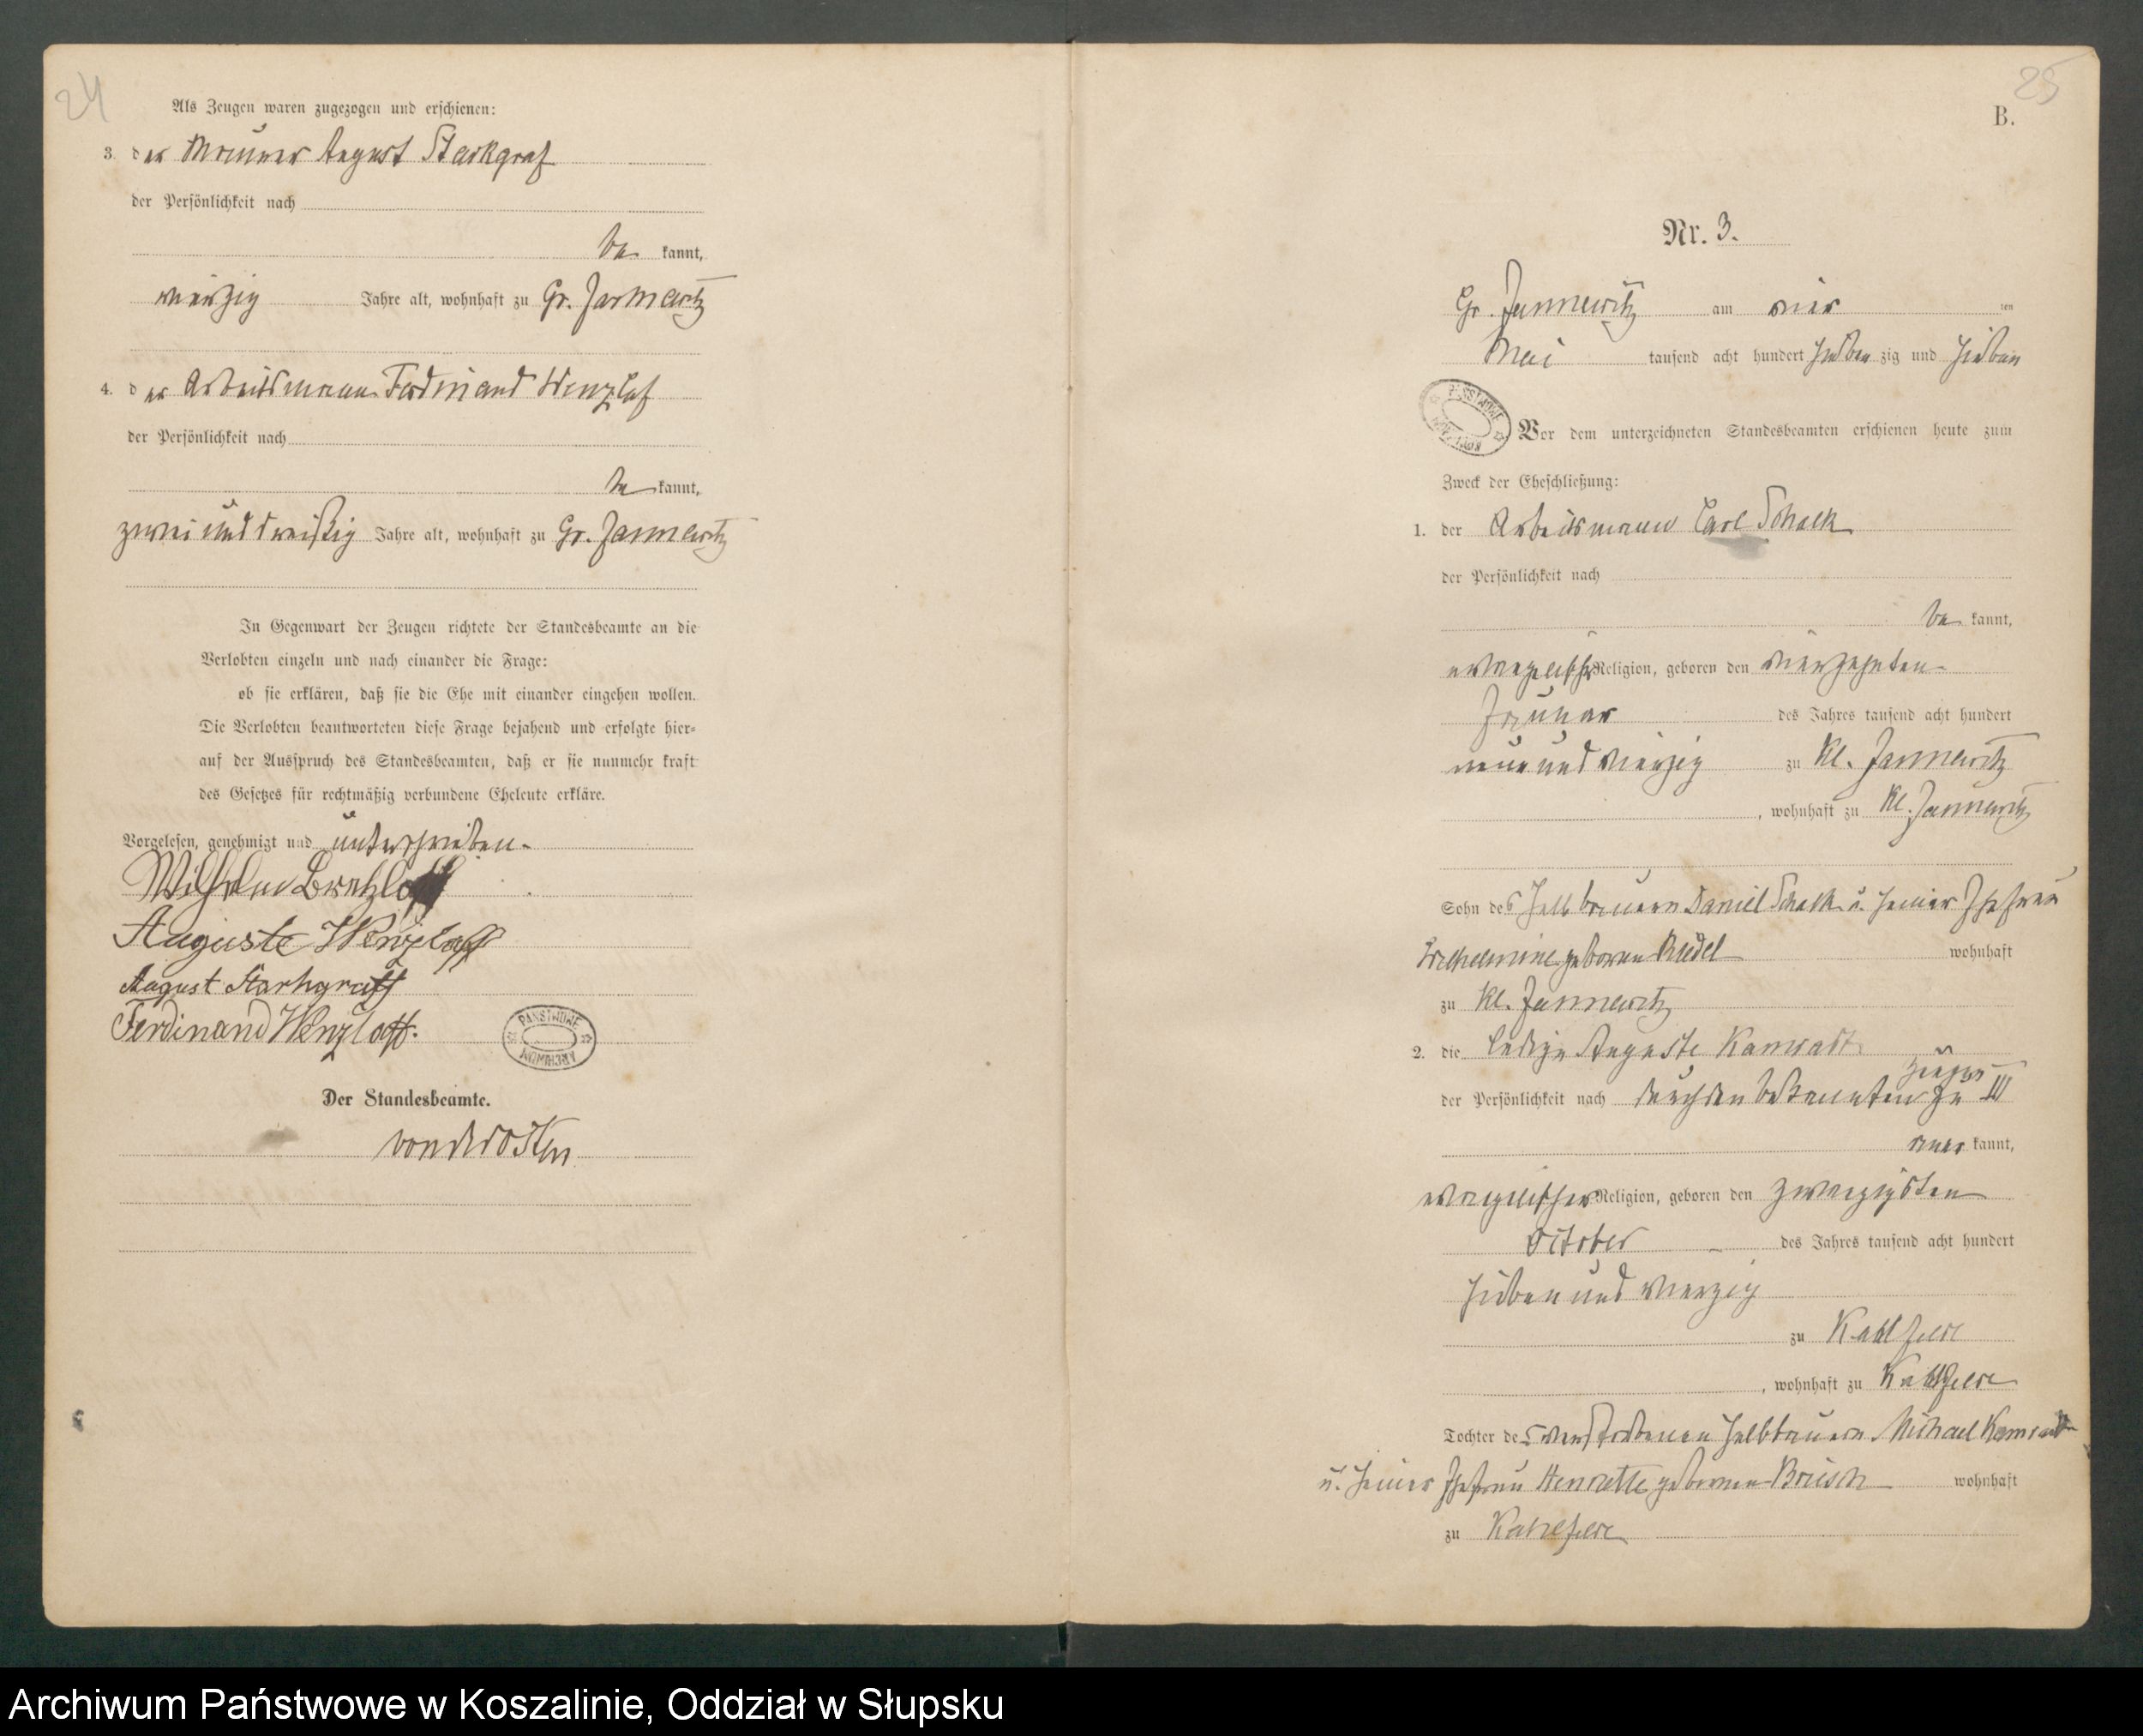 24
Als Zeugen waren zugezogen und erschienen:
3. der Maurer August Starkgraf
der Persönlichkeit nach
be kannt,
vierzig Jahre alt, wohnhaft zu Gr. Jannewitz
4. der Arbeitsmann Ferdinand Wenzlaf
der Persönlichkeit nach
be kannt,
zwei und dreißig Jahre alt, wohnhaft zu Gr. Jannewitz
In Gegenwart der Zeugen richtete der Standesbeamte an die
Verlobten einzeln und nach einander die Frage:
ob sie erklären, daß sie die Ehe mit einander eingehen wollen.
Die Verlobten beantworteten diese Frage bejahend und erfolgte hier-
auf der Ausspruch des Standesbeamten, daß er sie nunmehr kraft
des Gesetzes für rechtmäßig verbundene Eheleute erkläre.
Vorgelesen, genehmigt und unterschrieben.
Wilhelm
Auguste Wenzlaff
August Starkgraff
Ferdinand Wenzlaff.
PAŃSTWOWE ARCHIWUM
Der Standesbeamte.
von der Osten
25
B.
Nr. 3.
Gr. Jannewitz am vier ten
Mai tausend acht hundert sieben zig und sieben
PAŃSTWOWE ARCHIWUM
Vor dem unterzeichneten Standesbeamten erschienen heute zum
Zweck der Eheschließung:
1. der Arbeitsmann Carl Schalk
der Persönlichkeit nach
be kannt,
evangelischer Religion, geboren den vierzehnten
Januar des Jahres tausend acht hundert
neun und vierzig zu Kl. Jannewitz
, wohnhaft zu Kl. Jannewitz
Sohn des Halbbauern Daniel Schalk u. seiner Ehefrau
Wilhelmine geboren Riedel wohnhaft
zu Kl. Jannewitz
2. die ledige Auguste Kamradt
der Persönlichkeit nach durch den bekannten Zeugen zu III
aner kannt,
evangelischer Religion, geboren den zwanzigsten
October des Jahres tausend acht hundert
sieben und vierzig
zu Katzfelde
, wohnhaft zu
Tochter des verstorbenen Halbbauern Michael Kamradt
u. seiner Ehefrau Henriette geborenen wohnhaft
zu
Archiwum Państwowe w Koszalinie, Oddział w Słupsku